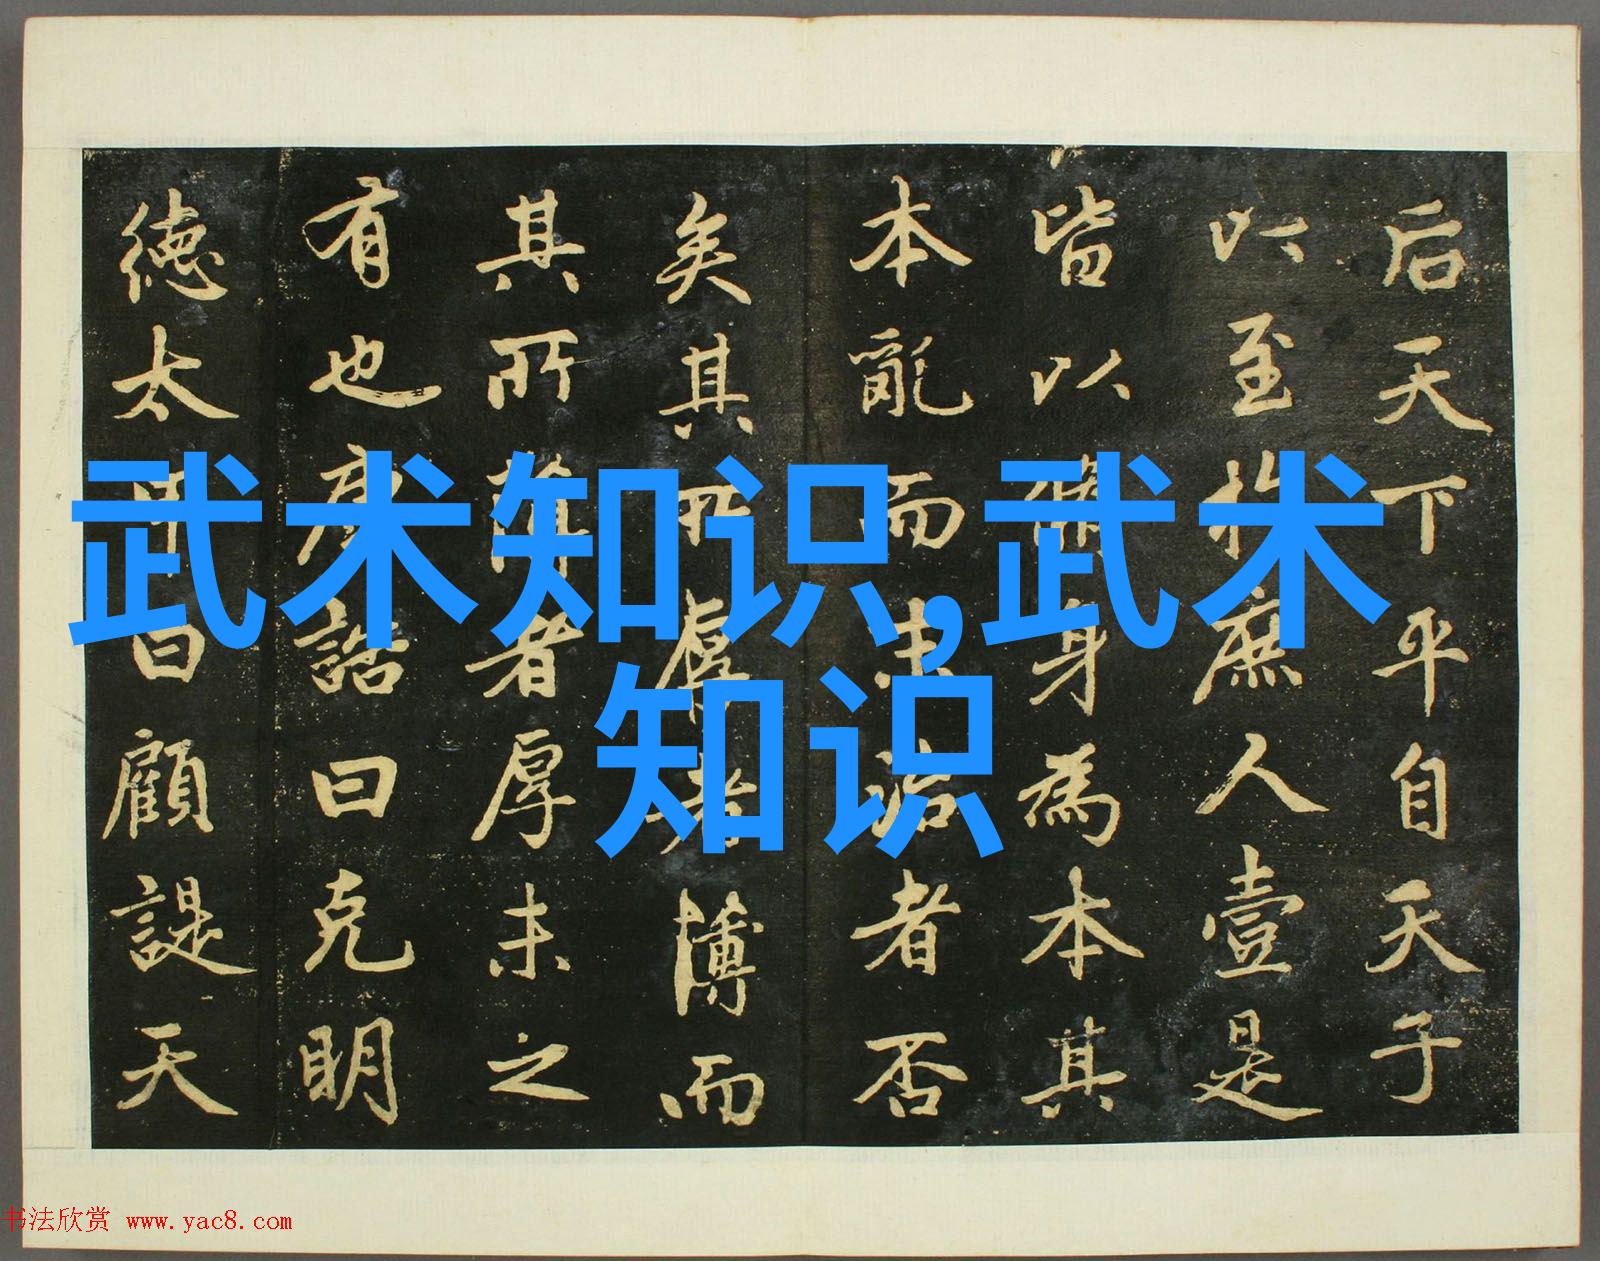 后天下平自天子
以至於庶人壹是
皆以脩身為本其
本亂而末治者否
矣其所厚者薄而
其所薄者厚未之
有也康誥曰克明
德太甲曰顧諟天
武术知识,武术
知识
书法欣赏 www.yac8.com